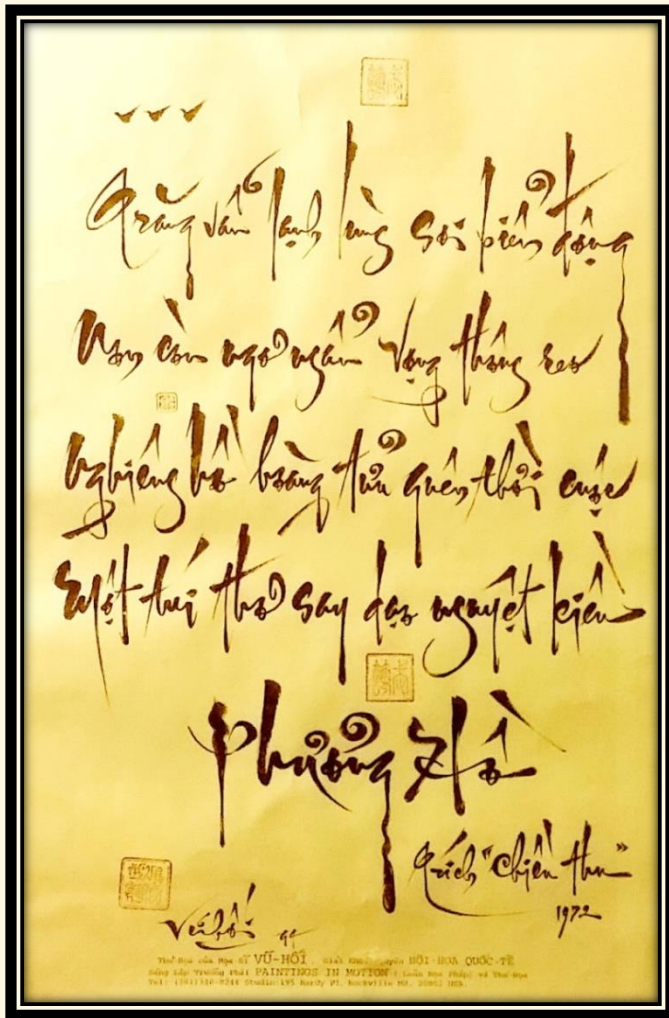 Trăng vẫn lạnh lùng soi biển động
Non còn ngơ ngẩn vọng thông reo
Nghiêng hồ tràng tửu quên thời cuộc
Một túi thơ say dạo nguyệt kiều
Phượng Hồ
Trích "Chiều thu"
1972
Vũ Hối 94
Thư Họa của Họa Sĩ VŨ-HỐI. Giải Khôi Nguyên HỘI HỌA QUỐC-TẾ
Sáng Lập Trường Phái PAINTINGS IN MOTION ( Luân Họa Pháp) và Thư Họa
Studio:195 Hardy Pl. Rockville MD. USA